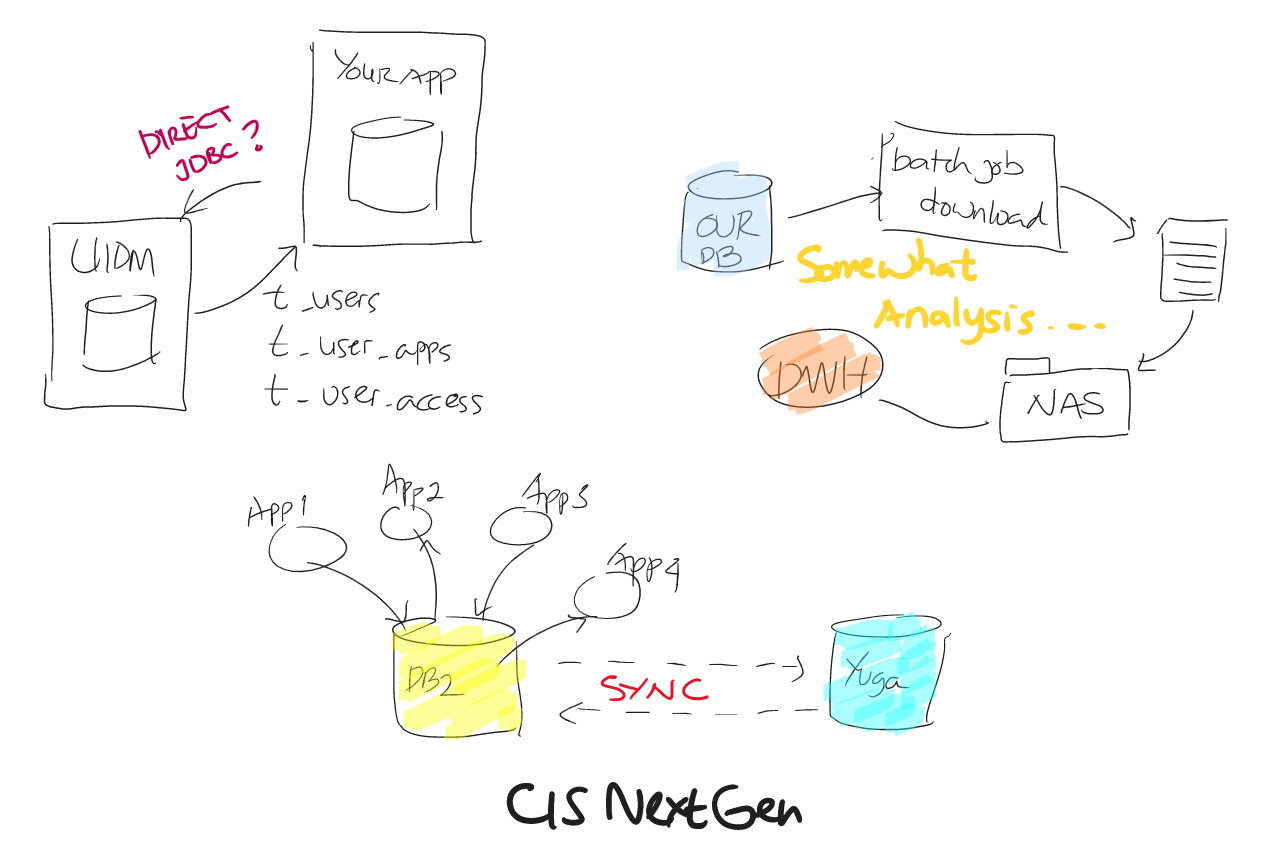 YOUR APP
DIRECT
JDBC?
UIDM
t_users
t_user_apps
t_user_access
OUR
DB
batch job
download
Somewhat
Analysis....
DWH
NAS
App1
App2
App3
App4
DB2
SYNC
Yuga
CIS NextGen